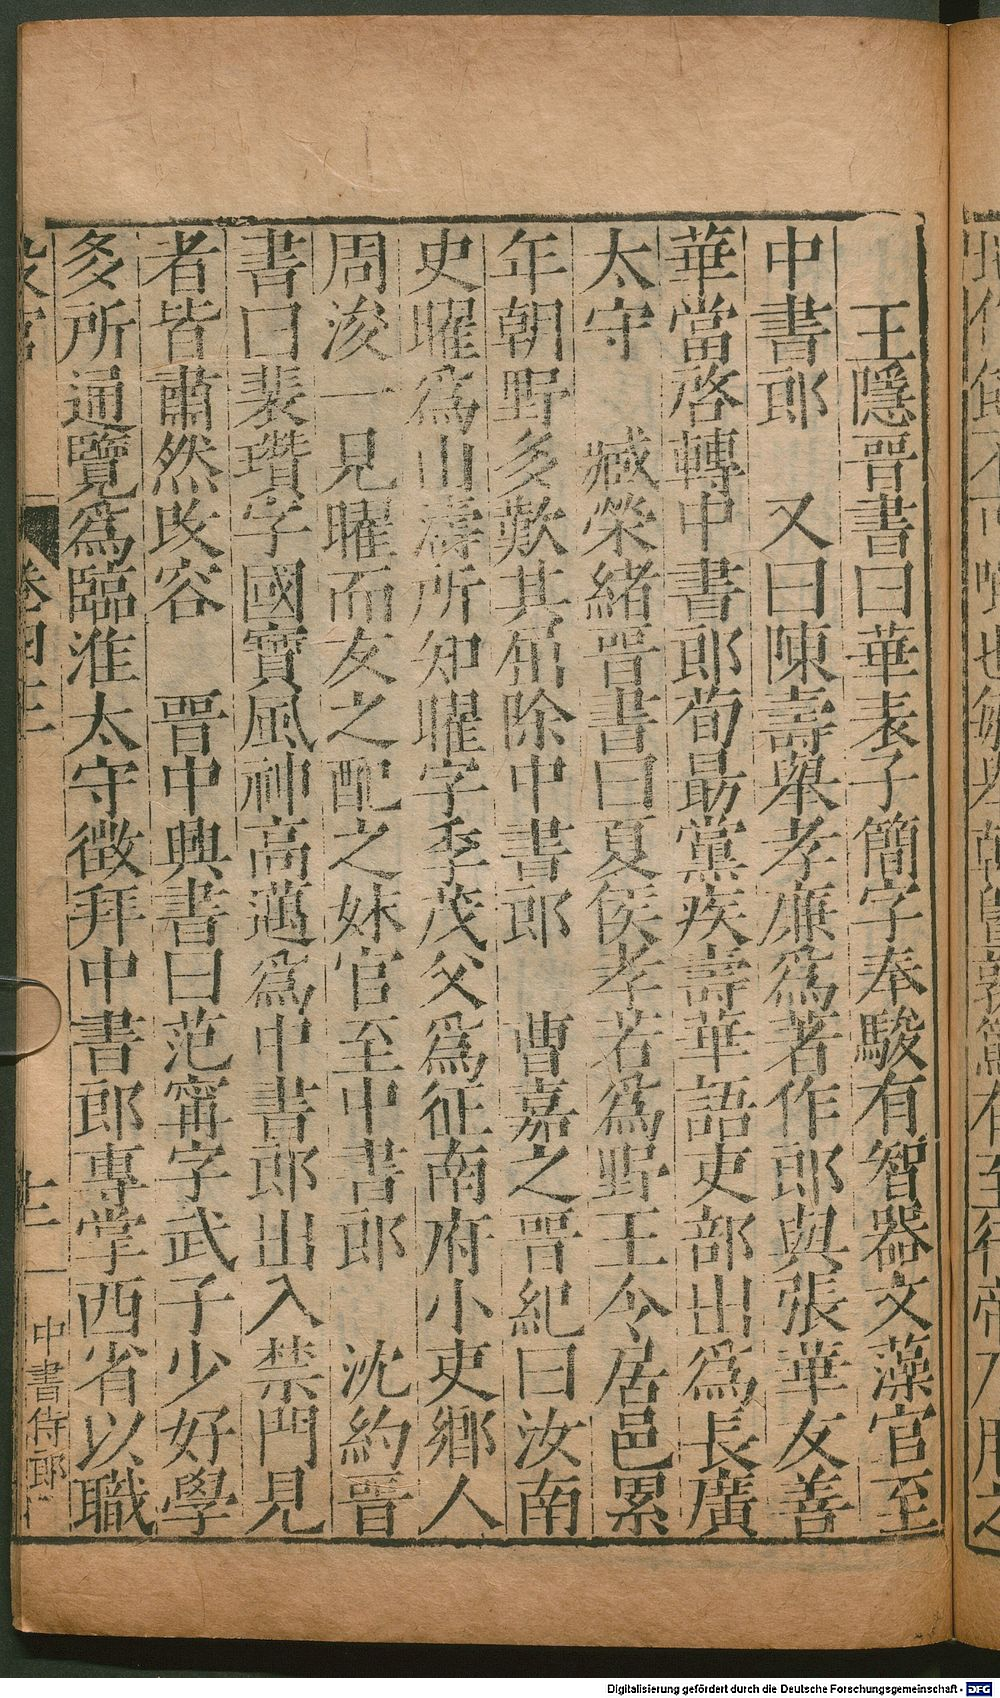 王隱晉書曰華表子簡字奉駿有智器文藻官至
中書郎　又曰陳壽舉孝廉爲著作郎與張華友善
華當啓轉中書郎荀勗黨疾壽華語吏部出爲長廣
太守　臧榮緒晉書曰夏侯孝若爲野王令居邑累
年朝野多歎其屈除中書郎　曹嘉之晉紀曰汝南
史曜爲山濤所知曜字季茂父爲征南府小吏鄉人
周浚一見曜而友之配之妹官至中書郎　沈約晉
書曰裴瓚字國寶風神高邁爲中書郎出入禁門見
者皆肅然改容　晉中興書曰范甯字武子少好學
多所通覽爲臨淮太守徵拜中書郎專掌西省以職
設官
卷四十二
十三
中書侍郎
Digitalisierung gefördert durch die Deutsche Forschungsgemeinschaft - DFG